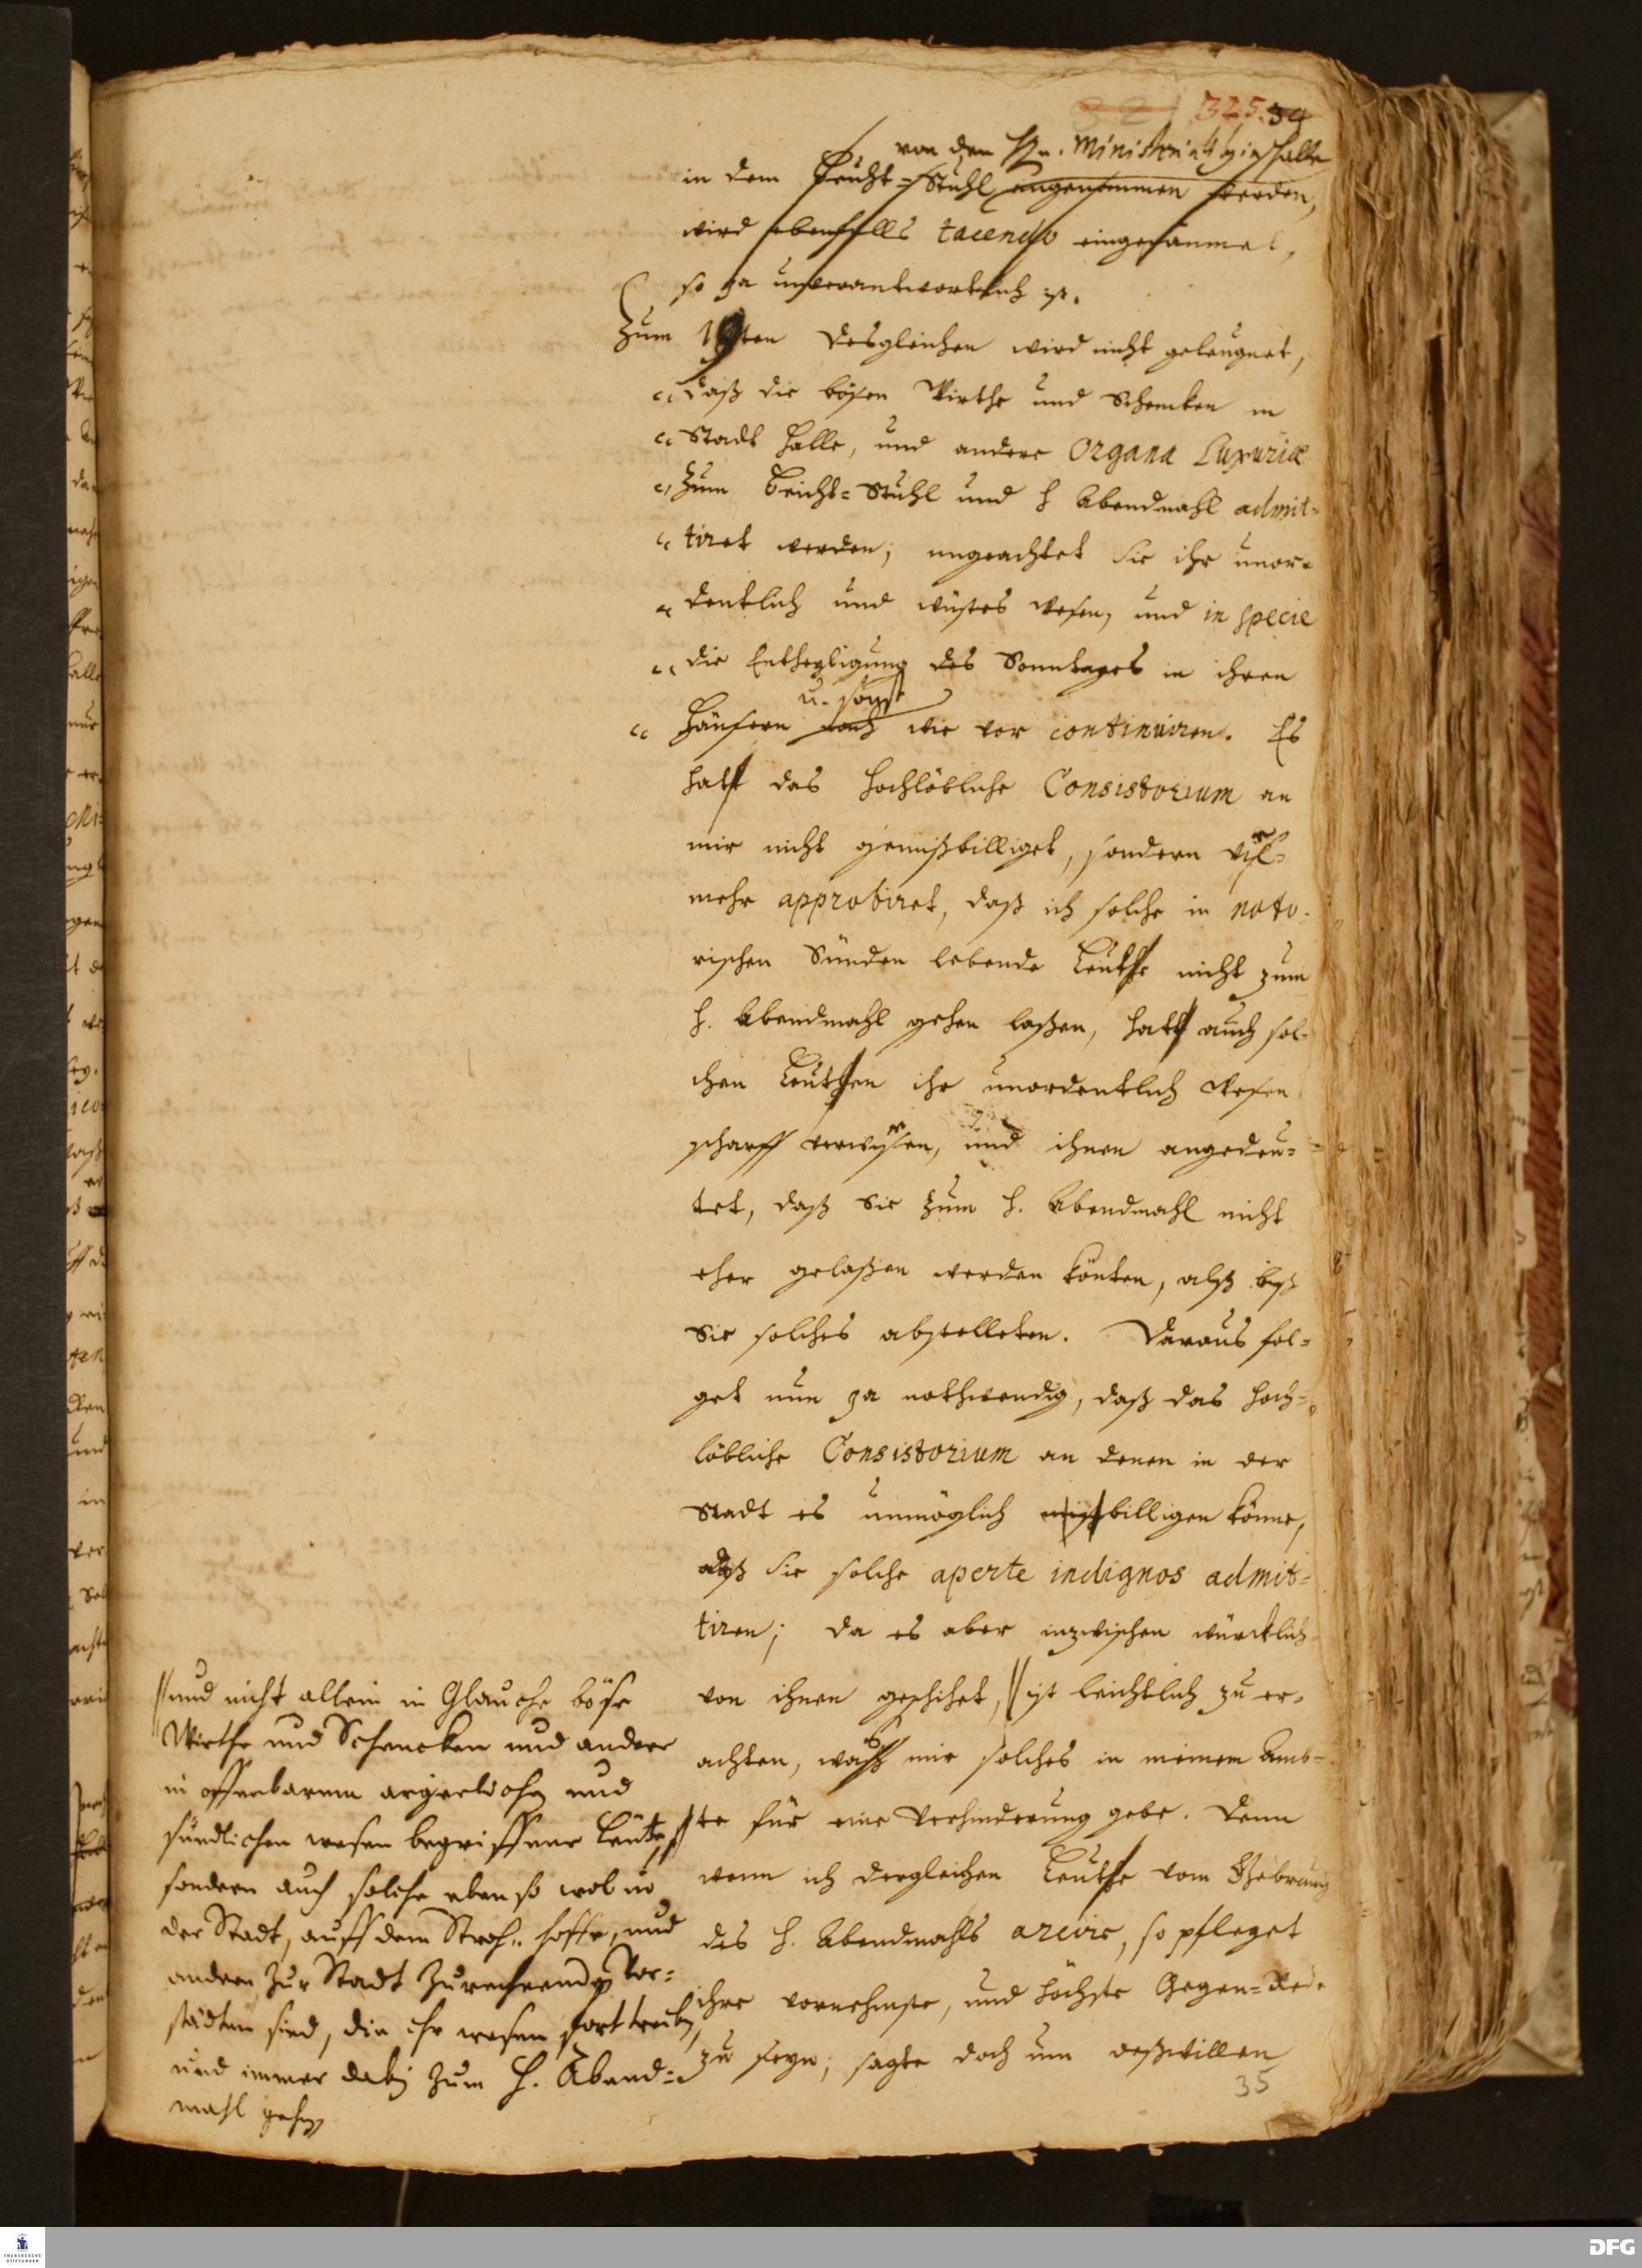 325. 34
von den Hn. Ministerialibus in Halle
in dem Beicht-Stuhl angenommen werden,
wird ebenfalls tacendo eingeräumet,
so ja unverantwortlich ist.
Zum 19ten Desgleichen wird nicht geleugnet,
daß die bösen Wirthe und Schencken in
Stadt Halle, und andere Organa Luxuriæ
zum Beicht-Stuhl und H Abendmahl admit-
tiret werden; ungeachtet Sie ihr unor-
dentlich und wüstes Wesen, und in specie
die Entheyligung des Sonntages in ihren
u. sonst
Häusern noch wie vor continuiren. Es
hatt das Hochlöbliche Consistorium an
mir nicht gemißbilliget, sondern viel-
mehr approbiret, daß ich solche in noto-
rischen Sünden lebende Leuthe nicht zum
H. Abendmahl gehen laßen, hatt auch sol-
chen Leuthen ihr unordentlich Wesen
scharff verwiesen, und ihnen angedeu-
tet, daß Sie zum H. Abendmahl nicht
eher gelaßen werden könten, alß biß
Sie solches abstelleten. Daraus fol-
get nun ja nothwendig, daß das Hoch-
löbliche Consistorium an denen in der
Stadt es unmöglich mißbilligen könne,
daß Sie solche aperte indignos admit-
tiren; da es aber inzwischen würcklich
von ihnen geschihet, ist leichtlich zu er-
achten, was mir solches in meinem Amb-
te für eine Verhinderung gebe. Denn
wenn ich dergleichen Leuthe vom Gebrauch
des H. Abendmahls arcire, so pfleget
ihre vornehmste, und höchste Gegen-Rede
zu seyn; sagte doch um deßwillen
und nicht allein in Glauche böse
Wirthe und Schencken und andere
in offenbarem ärgerlichen und
sündlichen wesen begriffene Leute,
sondern auch solche eben so wol in
der Stadt, auff dem Stroh-hoffe, und
andern zur Stadt zurechnenden Vor-
städten sind, die ihr wesen fort treiben,
und immer dabey zum H. Abend-
mahl gehen
35
DFG